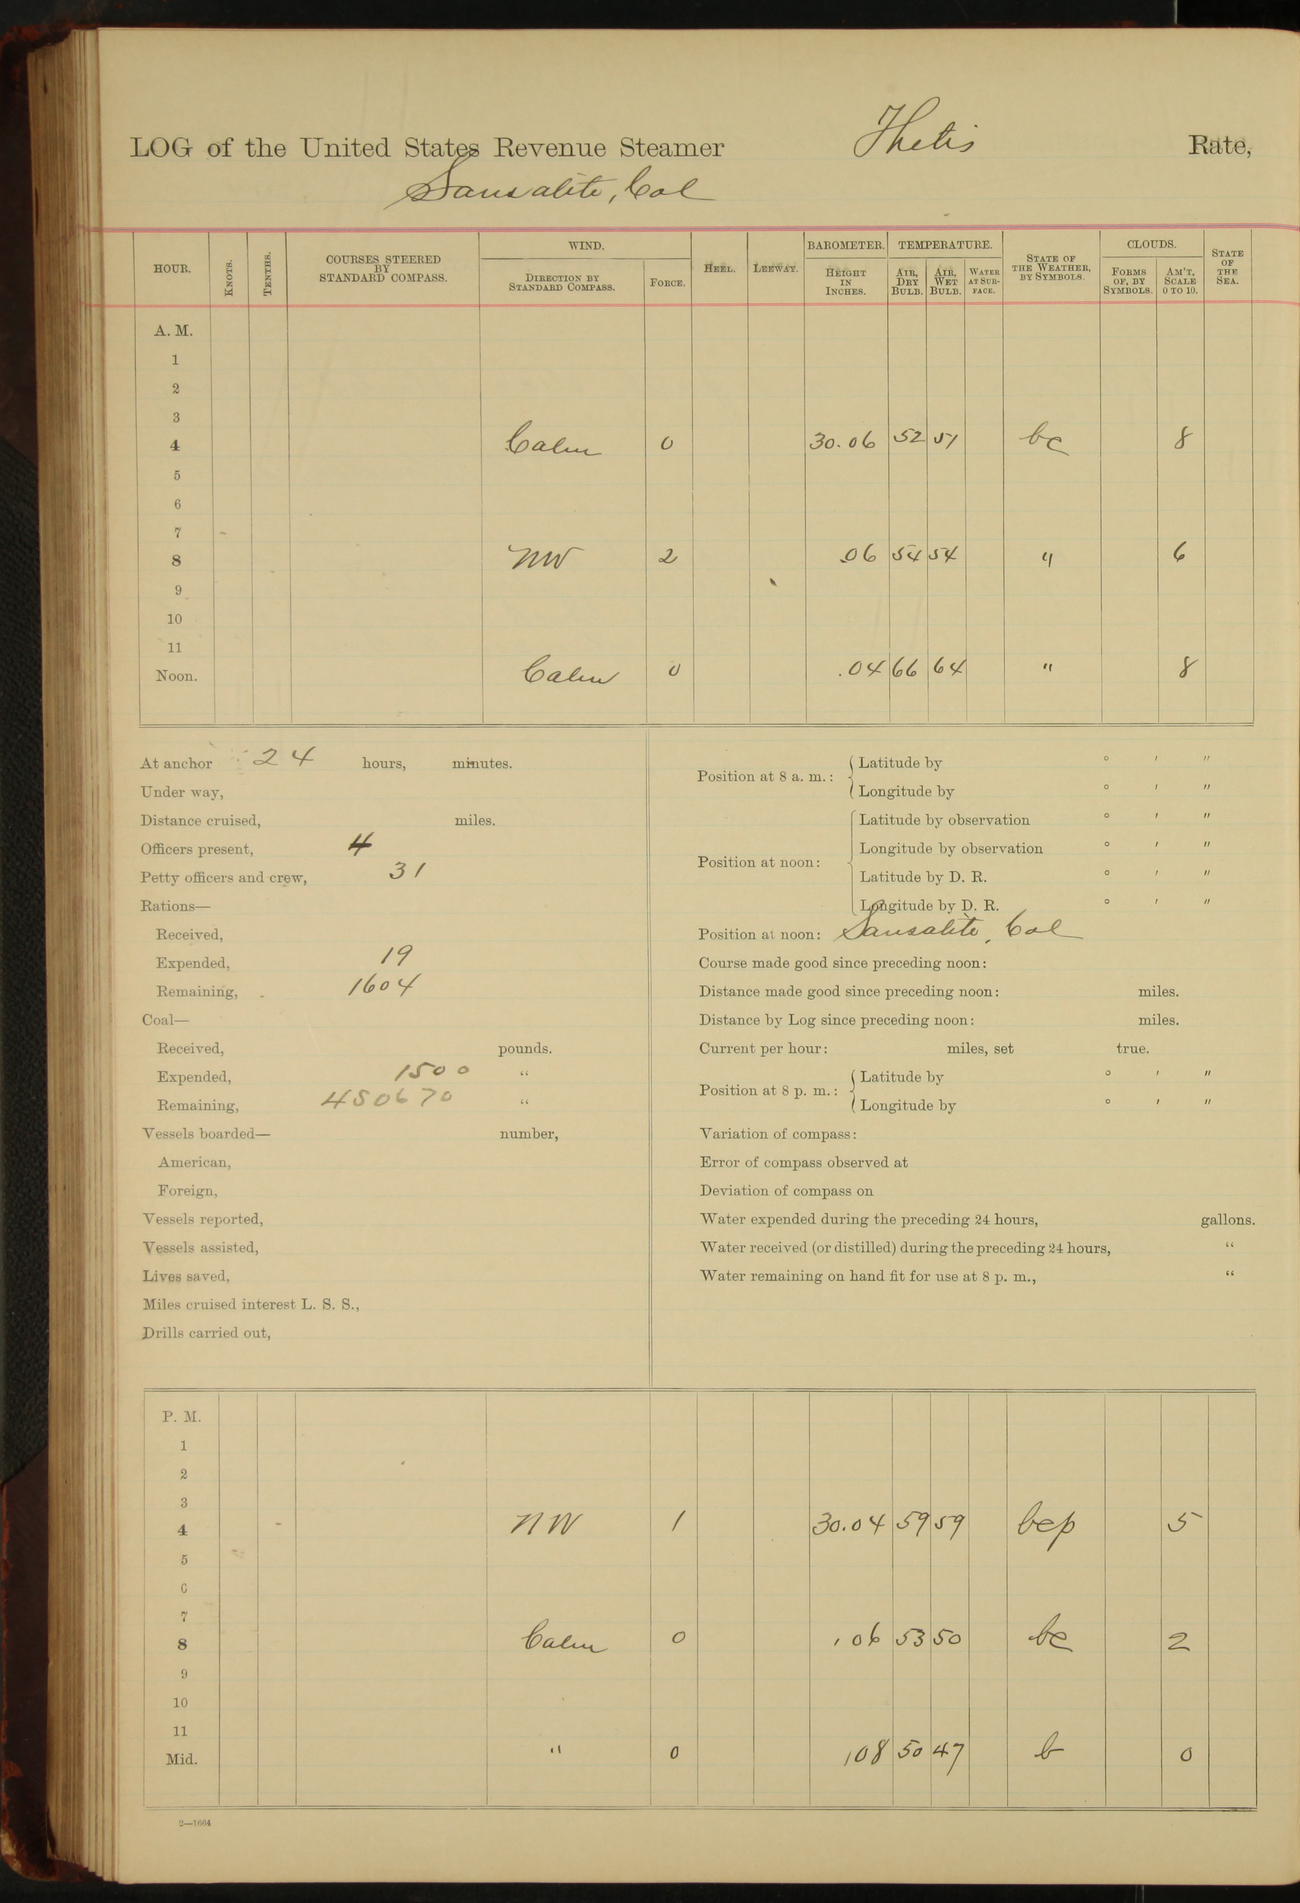 LOG of the United States Revenue Steamer Thetis Rate,
Sausalito, Cal
HOUR. KNOTS. TENTHS. COURSES STEERED BY STANDARD COMPASS. WIND. DIRECTION BY STANDARD COMPASS. FORCE. HEEL. LEEWAY. BAROMETER. HEIGHT IN INCHES. TEMPERATURE. AIR, DRY BULB. AIR, WET BULB. WATER AT SURFACE. STATE OF THE WEATHER, BY SYMBOLS. CLOUDS. FORMS OF, BY SYMBOLS. AM'T, SCALE 0 TO 10. STATE OF THE SEA.
A. M.
1
2
3
4 Calm 0 30.06 52 51 bc 8
5
6
7
8 NW 2 .06 54 54 " 6
9
10
11
Noon. Calm 0 .04 66 64 " 8
At anchor 24 hours, minutes.
Under way,
Distance cruised, miles.
Officers present, 4
Petty officers and crew, 31
Rations—
Received,
Expended, 19
Remaining, 1604
Coal—
Received, pounds.
Expended, 1500 "
Remaining, 450670 "
Vessels boarded— number,
American,
Foreign,
Vessels reported,
Vessels assisted,
Lives saved,
Miles cruised interest L. S. S.,
Drills carried out,
Position at 8 a. m.: Latitude by ° ′ ″
Longitude by ° ′ ″
Position at noon: Latitude by observation ° ′ ″
Longitude by observation ° ′ ″
Latitude by D. R. ° ′ ″
Longitude by D. R. ° ′ ″
Position at noon: Sausalito, Cal
Course made good since preceding noon:
Distance made good since preceding noon: miles.
Distance by Log since preceding noon: miles.
Current per hour: miles, set true.
Position at 8 p. m.: Latitude by ° ′ ″
Longitude by ° ′ ″
Variation of compass:
Error of compass observed at
Deviation of compass on
Water expended during the preceding 24 hours, gallons.
Water received (or distilled) during the preceding 24 hours, "
Water remaining on hand fit for use at 8 p. m., "
P. M.
1
2
3
4 NW 1 30.04 59 59 bcp 5
5
6
7
8 Calm 0 .06 53 50 bc 2
9
10
11
Mid. " 0 .08 50 47 b 0
2—1664